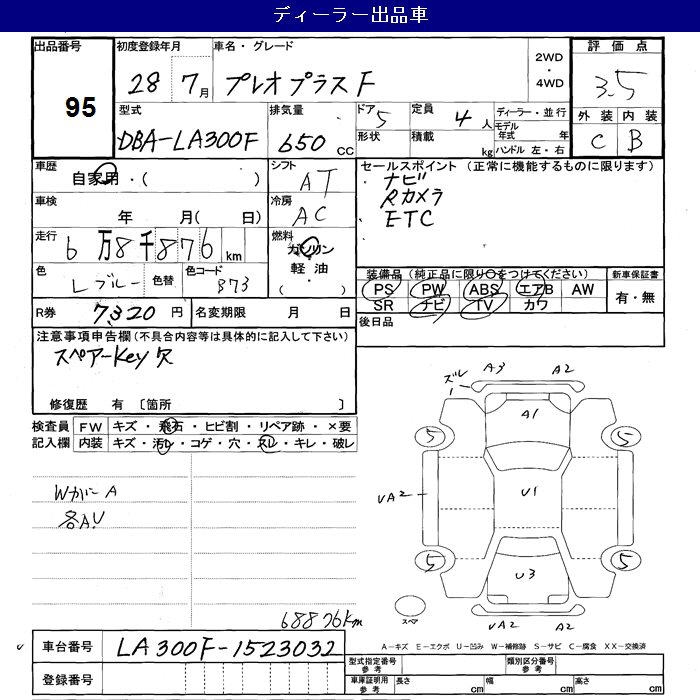 ディーラー出品車
出品番号 初度登録年月 車名・グレード 評価点
95 28 7月 プレオプラス F 2WD・4WD 3.5
型式 排気量 ドア 5 定員 4人 ディーラー・並行 外装 内装
DBA-LA300F 650cc 形状 積載 kg モデル年式 年 C B
ハンドル 左・右
車歴 シフト セールスポイント (正常に機能するものに限ります)
自家用・( ) AT ナビ
車検 冷房 Rカメラ
年 月( 日) AC ETC
走行 燃料
6万8千876km ガソリン
色 色替 色コード 軽油 装備品 (純正品に限り○をつけてください) 新車保証書
Lブルー B73 ・( ) PS PW ABS エアB AW 有・無
R券 7320円 名変期限 月 日 SR ナビ TV カワ
注意事項申告欄 (不具合内容等は具体的に記入して下さい) 後日品
スペアーKey欠
修復歴 有 〔箇所 〕
検査員 FW キズ・飛石・ヒビ割・リペア跡・×要
記入欄 内装 キズ・汚レ・コゲ・穴・スレ・キレ・破レ
ズレ A3 A2
A1
5 5
Wかに A
UA2 U1
各AU
5 5
U3
スペア UA2 A2
68876km
A-キズ E-エクボ U-凹み W-補修跡 S-サビ C-腐食 XX-交換済
車台番号 LA300F-1523032
型式指定番号 参考 類別区分番号 参考
登録番号 車庫証明用 参考 長さ cm 幅 cm 高さ cm